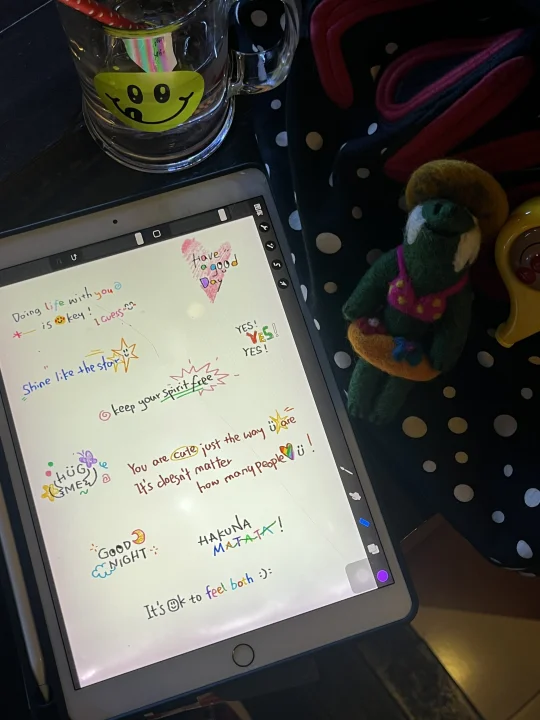 Have
a good
Day
Doing life with you
is okey!
I guess
YES!
YES!
YES!
Shine like the star
keep your spirit free
HUG
ME
You are cute just the way ü are
It's doesn't matter
how many people ü !
GOOD
NIGHT
HAKUNA
MATATA!
It's ok to feel both :):